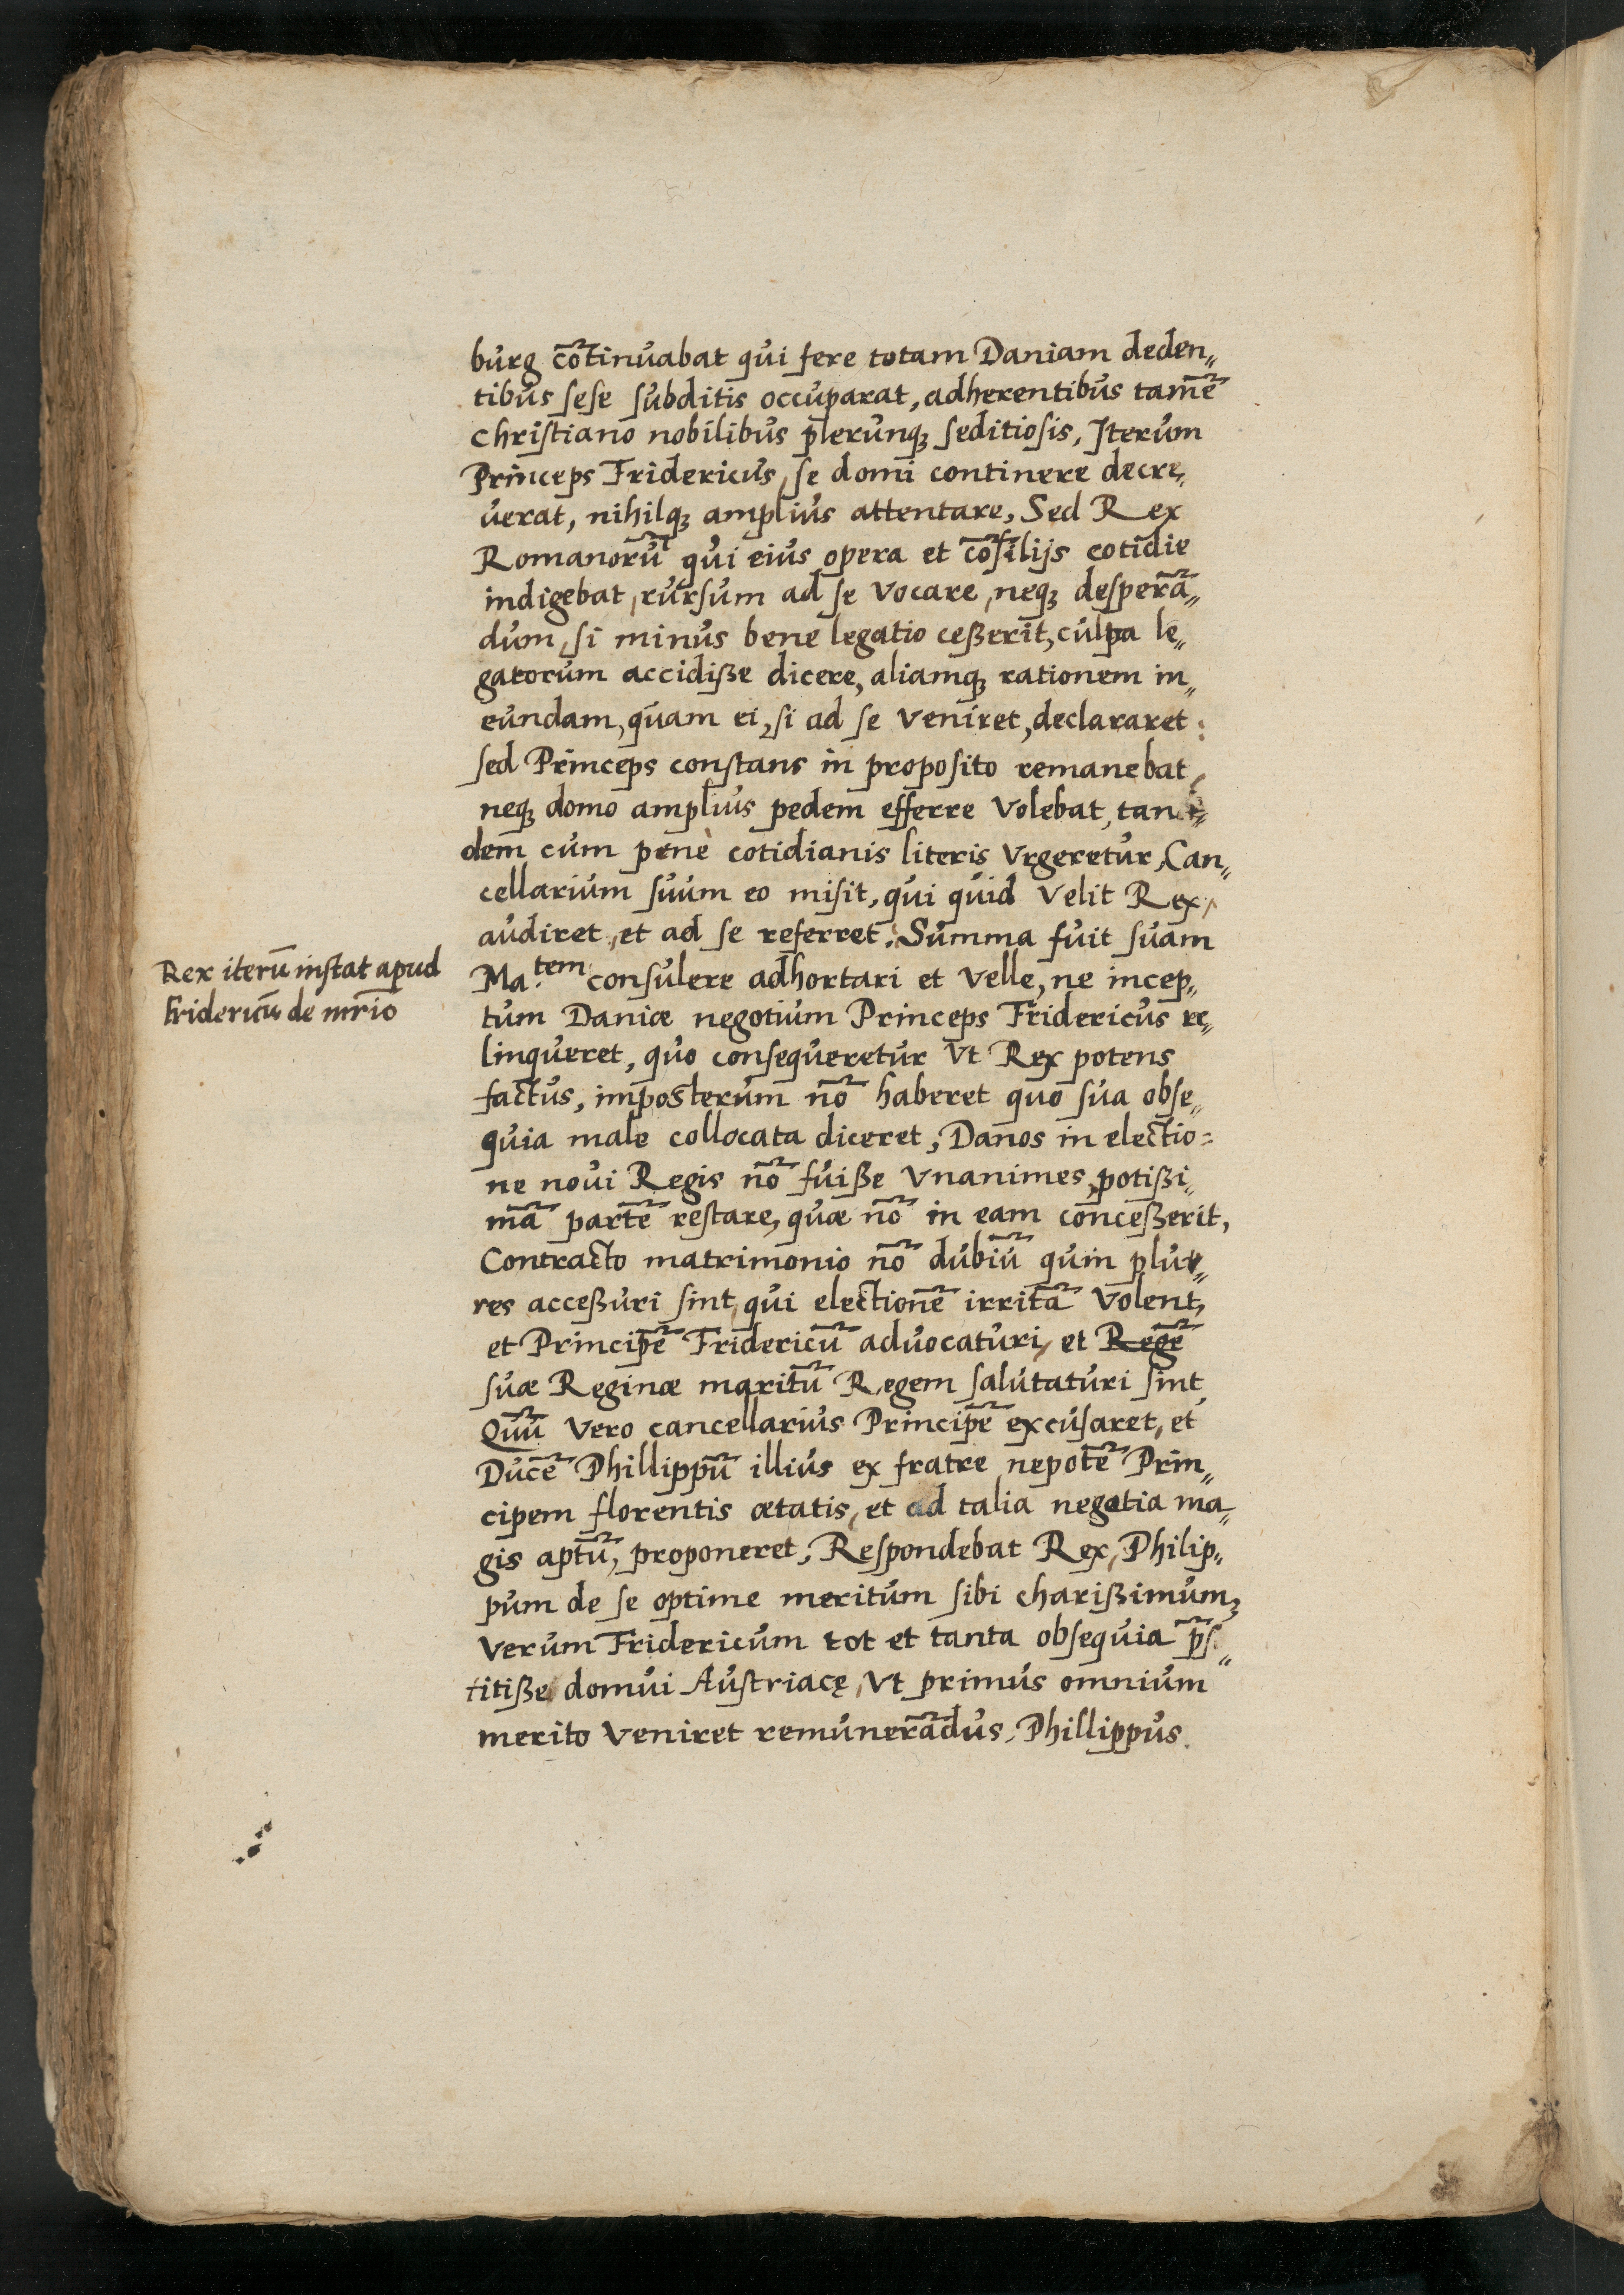 burg cōtinuabat qui fere totam Daniam deden„
tibus sese subditis occuparat, adherentibus tamē
Christiano nobilibus plerunqꝫ seditiosis, Iterum
Princeps Fridericus, se domi continere decre„
uerat, nihilqꝫ amplius attentare, Sed Rex
Romanorū qui eius opera et cōsilijs cotidie
indigebat, rursum ad se vocare, neqꝫ desperā„
dum, si minus bene legatio ceßerit, culpa le„
gatorum accidiße dicere, aliamqꝫ rationem in„
eundam, quam ei, si ad se veniret, declararet:
sed Princeps constans in proposito remanebat,
neqꝫ domo amplius pedem efferre volebat, tan„
dem cum penè cotidianis literis vrgeretur, Can„
cellarium suum eo misit, qui quid velit Rex,
audiret, et ad se referret. Summa fuit suam
Rex iterū instat apud
Fridericū de mr̄io
Ma.tem consulere adhortari et velle, ne incep„
tum Daniæ negotium Princeps Fridericus re„
linqueret, quo consequeretur vt Rex potens
factus, imposterum nō haberet quo sua obse„
quia male collocata diceret, Danos in electio=
ne noui Regis nō fuiße vnanimes, potißi„
mā partē restare, quæ nō in eam conceßerit,
Contracto matrimonio nō dubiū quin plu„
res acceßuri sint, qui electionē irritā volent,
et Principē Fridericū aduocaturi, et Regē
suæ Reginæ maritū Regem salutaturi sint
Quū vero cancellarius Principē excusaret, et
Ducē Phillippū illius ex fratre nepotē Prin„
cipem florentis ætatis, et ad talia negotia ma„
gis aptū, proponeret, Respondebat Rex, Philip„
pum de se optime meritum sibi charißimum,
verum Fridericum tot et tanta obsequia p̄s„
titiße domui Austriacę, vt primus omnium
merito veniret remunerādus, Phillippus.